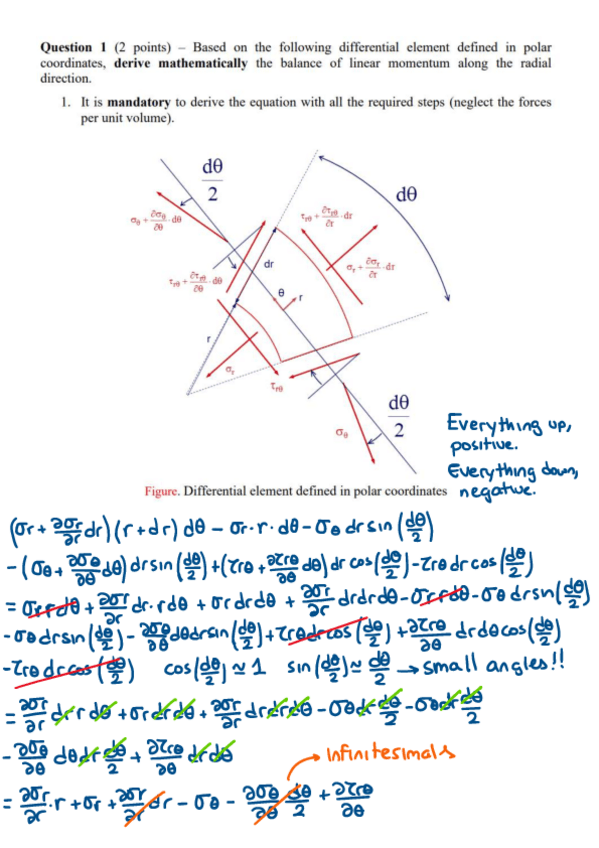 Question 1 (2 points) – Based on the following differential element defined in polar
coordinates, derive mathematically the balance of linear momentum along the radial
direction.
1. It is mandatory to derive the equation with all the required steps (neglect the forces
per unit volume).
dθ/2
dθ
σθ + ∂σθ/∂θ · dθ
τrθ + ∂τrθ/∂r · dr
σr + ∂σr/∂r · dr
dr
τrθ + ∂τrθ/∂θ · dθ
θ
r
r
σr
τrθ
dθ/2
σθ
Everything up,
positive.
Everything down,
negative.
Figure. Differential element defined in polar coordinates
(σr + ∂σr/∂r dr)(r + dr) dθ − σr · r · dθ − σθ dr sin(dθ/2)
− (σθ + ∂σθ/∂θ dθ) dr sin(dθ/2) + (τrθ + ∂τrθ/∂θ dθ) dr cos(dθ/2) − τrθ dr cos(dθ/2)
= σr r dθ + ∂σr/∂r dr · r dθ + σr dr dθ + ∂σr/∂r dr dr dθ − σr r dθ − σθ dr sin(dθ/2)
− σθ dr sin(dθ/2) − ∂σθ/∂θ dθ dr sin(dθ/2) + τrθ dr cos(dθ/2) + ∂τrθ/∂θ dr dθ cos(dθ/2)
− τrθ dr cos(dθ/2) cos(dθ/2) ≃ 1 sin(dθ/2) ≃ dθ/2 → small angles!!
= ∂σr/∂r dr r dθ + σr dr dθ + ∂σr/∂r dr dr dθ − σθ dr dθ/2 − σθ dr dθ/2
− ∂σθ/∂θ dθ dr dθ/2 + ∂τrθ/∂θ dr dθ
→ infinitesimals
= ∂σr/∂r · r + σr + ∂σr/∂r dr − σθ − ∂σθ/∂θ dθ/2 + ∂τrθ/∂θ